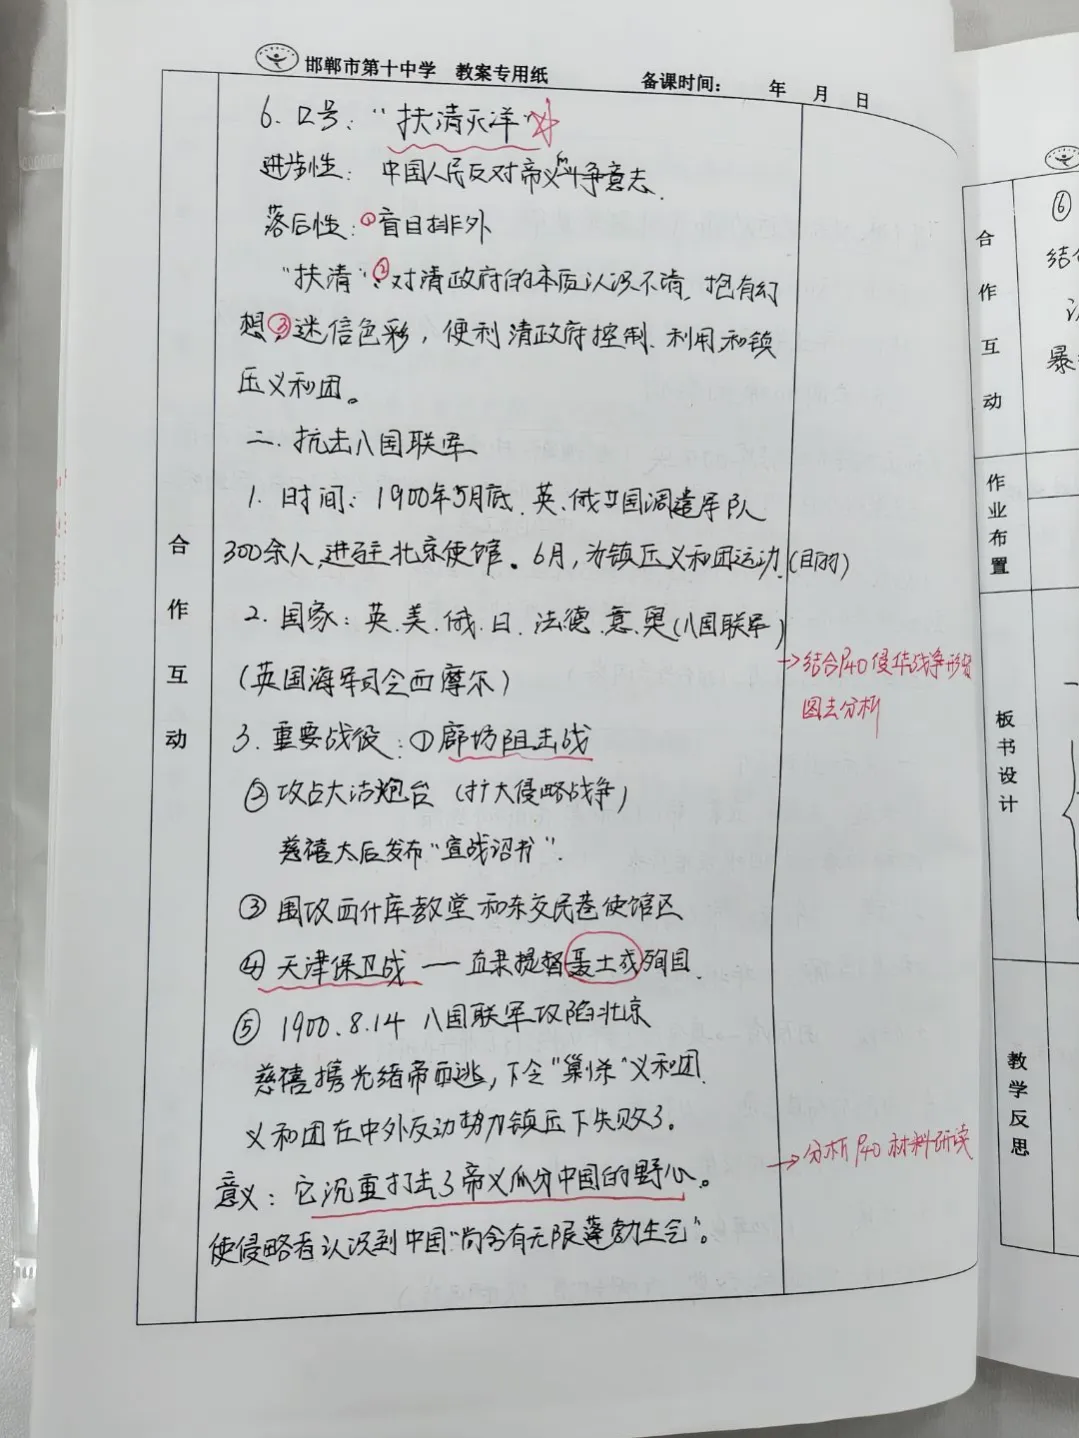 邯郸市第十中学 教案专用纸 备课时间: 年 月 日
6. 口号: “扶清灭洋”
进步性: 中国人民反对帝义的斗争意志.
落后性: ①盲目排外
“扶清”: ②对清政府的本质认识不清, 抱有幻
想 ③迷信色彩, 便利清政府控制、利用和镇
压义和团。
二. 抗击八国联军
1. 时间: 1900年5月底, 英、俄等国调遣军队
300余人,进驻北京使馆。6月, 为镇压义和团运动.(目的)
2. 国家: 英.美.俄.日.法德.意.奥(八国联军)
(英国海军司令西摩尔)
→结合P40侵华战争形势
图去分析
3. 重要战役: ①廊坊阻击战
②攻占大沽炮台 (扩大侵略战争)
慈禧太后发布“宣战诏书”.
③围攻西什库教堂和东交民巷使馆区
④天津保卫战 — 直隶提督聂士成殉国.
⑤1900.8.14 八国联军攻陷北京
慈禧携光绪帝西逃, 下令“剿杀”义和团.
义和团在中外反动势力镇压下失败了.
→分析P40材料研读
意义: 它沉重打击了帝义瓜分中国的野心。
使侵略者认识到中国“尚含有无限蓬勃生气”。
合
作
互
动
合
作
互
动
作
业
布
置
板
书
设
计
教
学
反
思
⑥